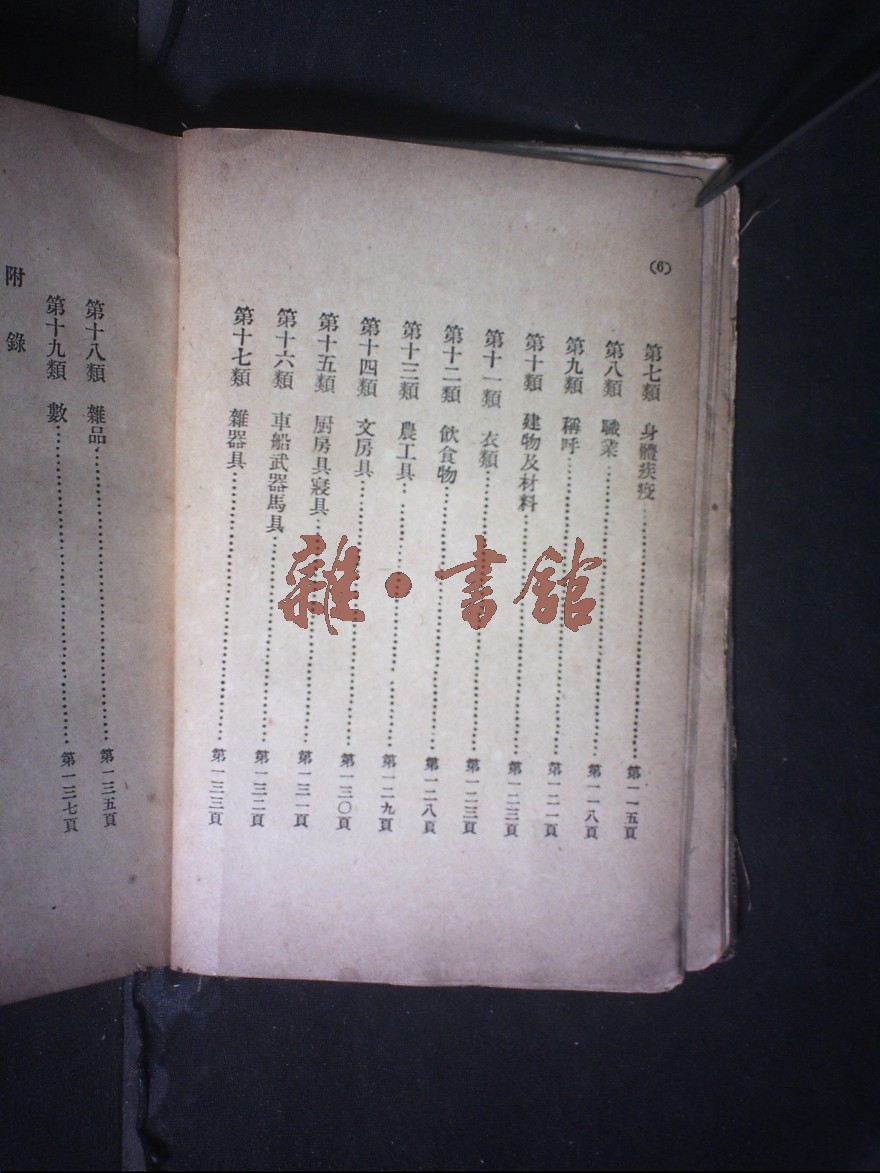 (6)
第七類 身體疾疫……第一一五頁
第八類 職業……第一一八頁
第九類 稱呼……第一二一頁
第十類 建物及材料……第一二三頁
第十一類 衣類……第一二三頁
第十二類 飲食物……第一二八頁
第十三類 農工具……第一二九頁
第十四類 文房具……第一三〇頁
第十五類 厨房具寢具……第一三一頁
第十六類 車船武器馬具……第一三二頁
第十七類 雜器具……第一三三頁
第十八類 雜品……第一三五頁
第十九類 數……第一三七頁
附錄
雜·書館